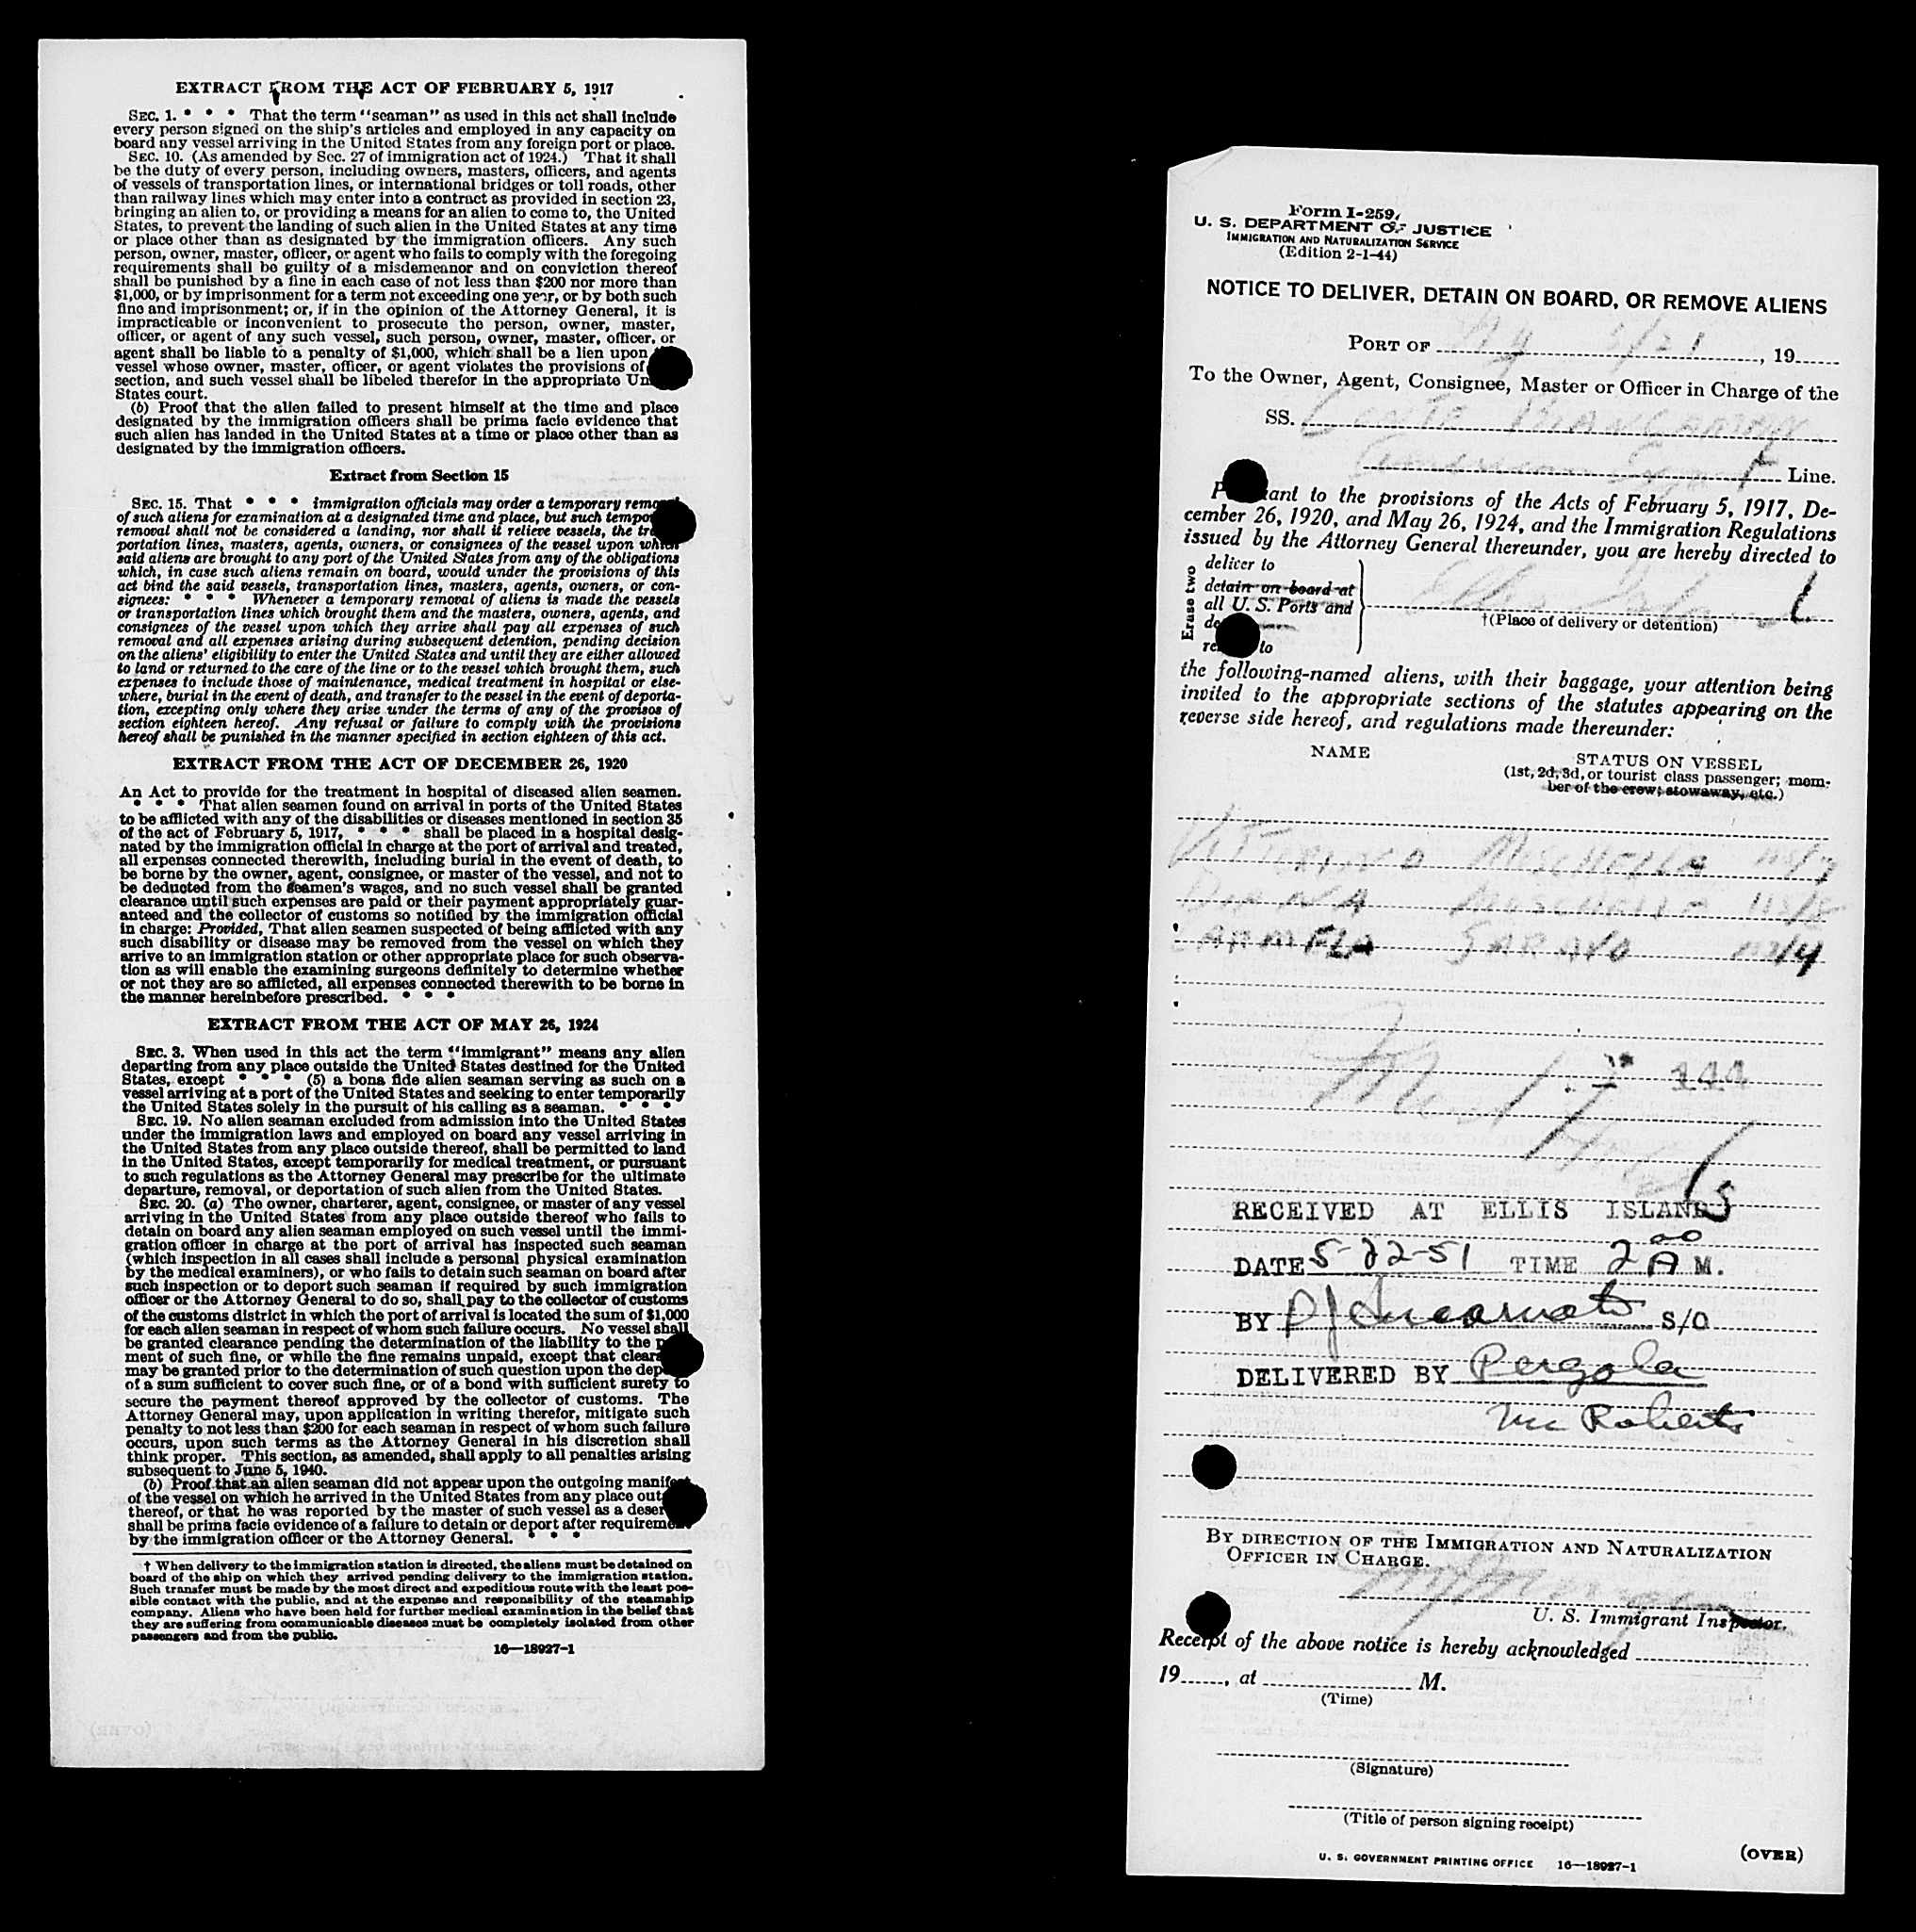 EXTRACT FROM THE ACT OF FEBRUARY 5, 1917
SEC. 1. * * * That the term "seaman" as used in this act shall include
every person signed on the ship's articles and employed in any capacity on
board any vessel arriving in the United States from any foreign port or place.
SEC. 10. (As amended by Sec. 27 of immigration act of 1924.) That it shall
be the duty of every person, including owners, masters, officers, and agents
of vessels of transportation lines, or international bridges or toll roads, other
than railway lines which may enter into a contract as provided in section 23,
bringing an alien to, or providing a means for an alien to come to, the United
States, to prevent the landing of such alien in the United States at any time
or place other than as designated by the immigration officers. Any such
person, owner, master, officer, or agent who fails to comply with the foregoing
requirements shall be guilty of a misdemeanor and on conviction thereof
shall be punished by a fine in each case of not less than $200 nor more than
$1,000, or by imprisonment for a term not exceeding one year, or by both such
fine and imprisonment; or, if in the opinion of the Attorney General, it is
impracticable or inconvenient to prosecute the person, owner, master,
officer, or agent of any such vessel, such person, owner, master, officer, or
agent shall be liable to a penalty of $1,000, which shall be a lien upon
vessel whose owner, master, officer, or agent violates the provisions of
section, and such vessel shall be libeled therefor in the appropriate Un
States court.
(b) Proof that the alien failed to present himself at the time and place
designated by the immigration officers shall be prima facie evidence that
such alien has landed in the United States at a time or place other than as
designated by the immigration officers.
Extract from Section 15
SEC. 15. That * * * immigration officials may order a temporary remo
of such aliens for examination at a designated time and place, but such tempo
removal shall not be considered a landing, nor shall it relieve vessels, the tra
portation lines, masters, agents, owners, or consignees of the vessel upon which
said aliens are brought to any port of the United States from any of the obligations
which, in case such aliens remain on board, would under the provisions of this
act bind the said vessels, transportation lines, masters, agents, owners, or con-
signees: * * * Whenever a temporary removal of aliens is made the vessels
or transportation lines which brought them and the masters, owners, agents, and
consignees of the vessel upon which they arrive shall pay all expenses of such
removal and all expenses arising during subsequent detention, pending decision
on the aliens' eligibility to enter the United States and until they are either allowed
to land or returned to the care of the line or to the vessel which brought them, such
expenses to include those of maintenance, medical treatment in hospital or else-
where, burial in the event of death, and transfer to the vessel in the event of deporta-
tion, excepting only where they arise under the terms of any of the provisos of
section eighteen hereof. Any refusal or failure to comply with the provisions
hereof shall be punished in the manner specified in section eighteen of this act.
EXTRACT FROM THE ACT OF DECEMBER 26, 1920
An Act to provide for the treatment in hospital of diseased alien seamen.
* * * That alien seamen found on arrival in ports of the United States
to be afflicted with any of the disabilities or diseases mentioned in section 35
of the act of February 5, 1917, * * * shall be placed in a hospital desig-
nated by the immigration official in charge at the port of arrival and treated,
all expenses connected therewith, including burial in the event of death, to
be borne by the owner, agent, consignee, or master of the vessel, and not to
be deducted from the seamen's wages, and no such vessel shall be granted
clearance until such expenses are paid or their payment appropriately guar-
anteed and the collector of customs so notified by the immigration official
in charge: Provided, That alien seamen suspected of being afflicted with any
such disability or disease may be removed from the vessel on which they
arrive to an immigration station or other appropriate place for such observa-
tion as will enable the examining surgeons definitely to determine whether
or not they are so afflicted, all expenses connected therewith to be borne in
the manner hereinbefore prescribed. * * *
EXTRACT FROM THE ACT OF MAY 26, 1924
SEC. 3. When used in this act the term "immigrant" means any alien
departing from any place outside the United States destined for the United
States, except * * * (5) a bona fide alien seaman serving as such on a
vessel arriving at a port of the United States and seeking to enter temporarily
the United States solely in the pursuit of his calling as a seaman. * * *
SEC. 19. No alien seaman excluded from admission into the United States
under the immigration laws and employed on board any vessel arriving in
the United States from any place outside thereof, shall be permitted to land
in the United States, except temporarily for medical treatment, or pursuant
to such regulations as the Attorney General may prescribe for the ultimate
departure, removal, or deportation of such alien from the United States.
SEC. 20. (a) The owner, charterer, agent, consignee, or master of any vessel
arriving in the United States from any place outside thereof who fails to
detain on board any alien seaman employed on such vessel until the immi-
gration officer in charge at the port of arrival has inspected such seaman
(which inspection in all cases shall include a personal physical examination
by the medical examiners), or who fails to detain such seaman on board after
such inspection or to deport such seaman if required by such immigration
officer or the Attorney General to do so, shall pay to the collector of customs
of the customs district in which the port of arrival is located the sum of $1,000
for each alien seaman in respect of whom such failure occurs. No vessel shall
be granted clearance pending the determination of the liability to the p
ment of such fine, or while the fine remains unpaid, except that clear
may be granted prior to the determination of such question upon the dep
of a sum sufficient to cover such fine, or of a bond with sufficient surety to
secure the payment thereof approved by the collector of customs. The
Attorney General may, upon application in writing therefor, mitigate such
penalty to not less than $200 for each seaman in respect of whom such failure
occurs, upon such terms as the Attorney General in his discretion shall
think proper. This section, as amended, shall apply to all penalties arising
subsequent to June 5, 1940.
(b) Proof that an alien seaman did not appear upon the outgoing manifest
of the vessel on which he arrived in the United States from any place out
thereof, or that he was reported by the master of such vessel as a deser
shall be prima facie evidence of a failure to detain or deport after requireme
by the immigration officer or the Attorney General. * * *
† When delivery to the immigration station is directed, the aliens must be detained on
board of the ship on which they arrived pending delivery to the immigration station.
Such transfer must be made by the most direct and expeditious route with the least pos-
sible contact with the public, and at the expense and responsibility of the steamship
company. Aliens who have been held for further medical examination in the belief that
they are suffering from communicable diseases must be completely isolated from other
passengers and from the public.
16—18927-1
Form I-259
U. S. DEPARTMENT OF JUSTICE
IMMIGRATION AND NATURALIZATION SERVICE
(Edition 2-1-44)
NOTICE TO DELIVER, DETAIN ON BOARD, OR REMOVE ALIENS
PORT OF NY 5/21, 19
To the Owner, Agent, Consignee, Master or Officer in Charge of the
SS. Conte Biancamano
American Export Line.
ant to the provisions of the Acts of February 5, 1917, De-
cember 26, 1920, and May 26, 1924, and the Immigration Regulations
issued by the Attorney General thereunder, you are hereby directed to
Erase two
deliver to
detain on board at
all U. S. Ports and
to
Ellis Island
†(Place of delivery or detention)
the following-named aliens, with their baggage, your attention being
invited to the appropriate sections of the statutes appearing on the
reverse side hereof, and regulations made thereunder:
NAME
STATUS ON VESSEL
(1st, 2d, 3d, or tourist class passenger; mem-
ber of the crew; stowaway, etc.)
VITTORINO MOSCHELLA 115/7
MOSCHELLA 115/8
CARMELA SARAVO
144
RECEIVED AT ELLIS ISLAND
DATE 5-22-51 TIME 2 00 A M.
BY S/O
DELIVERED BY Pergola
Mc Roberts
BY DIRECTION OF THE IMMIGRATION AND NATURALIZATION
OFFICER IN CHARGE.
U. S. Immigrant Inspector.
Receipt of the above notice is hereby acknowledged
19, at M.
(Time)
(Signature)
(Title of person signing receipt)
U. S. GOVERNMENT PRINTING OFFICE 16—18927-1
(OVER)